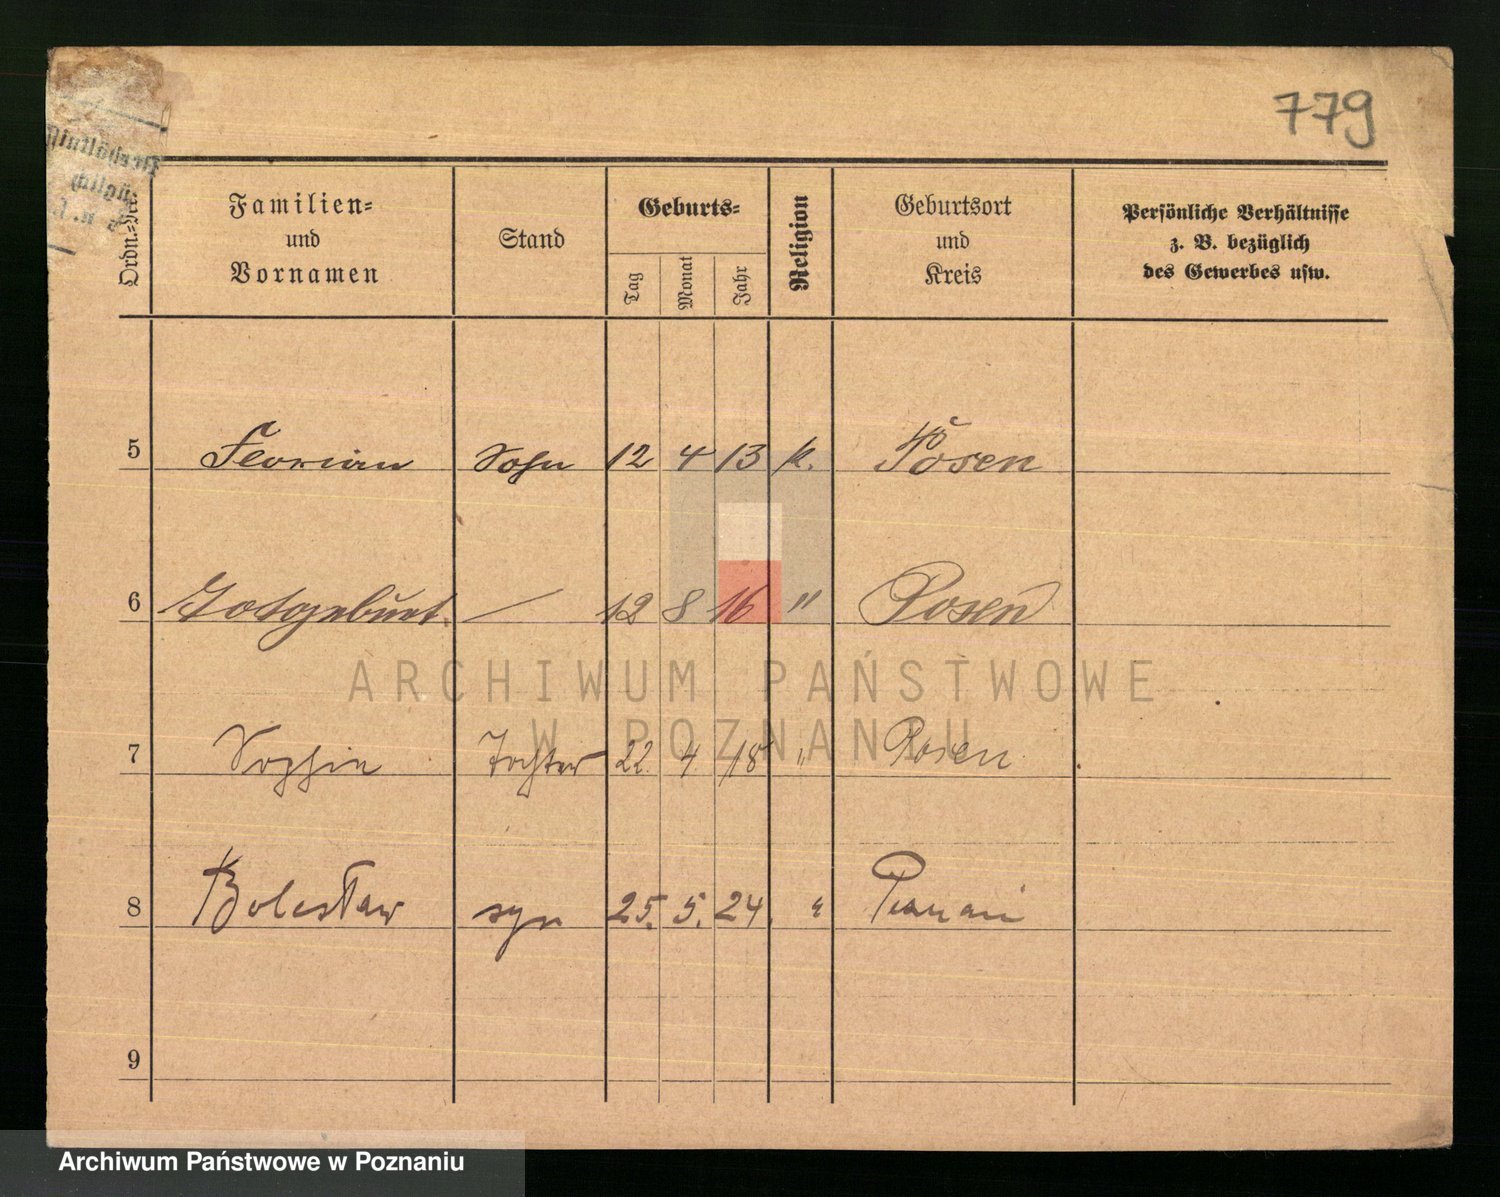 779
Ordn.-Nr.
Familien-
und
Vornamen
Stand
Geburts-
Tag
Monat
Jahr
Religion
Geburtsort
und
Kreis
Persönliche Verhältnisse
z. B. bezüglich
des Gewerbes usw.
5 Florian Sohn 12 4 13 k. Posen
6 Totgeburt. — 12 8 16 " Posen
ARCHIWUM PAŃSTWOWE
W POZNANIU
7 Sophie Tochter 22. 4. 18 " Posen
8 Bolesław syn 25. 5. 24. "
9
Archiwum Państwowe w Poznaniu